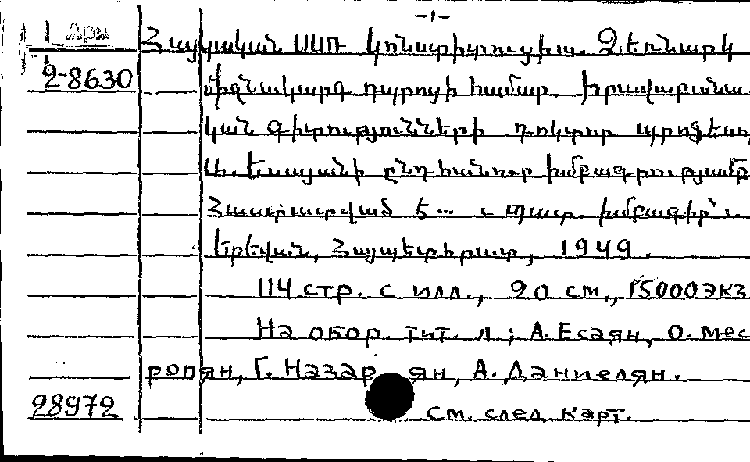 -1-
1 Հայկական ՍՍՌ կոնստիտուցիա. Ձեռնարկ
2-8630 միջնակարգ դպրոցի համար. Իրավաբանա-
կան գիտությունների դոկտոր պրոֆեսոր
Ա. Եսայանի ընդհանուր խմբագրությամբ
Հաստատված է... պատ. խմբագիր՝
Երևան, Հայպետհրատ, 1949.
114 стр. с илл., 20 см., 15000 экз
На обор. тит. л: А. Есаян, О. Мес-
ропян, Г. Назар ян, А. Даниелян.
28972 см. след. карт.